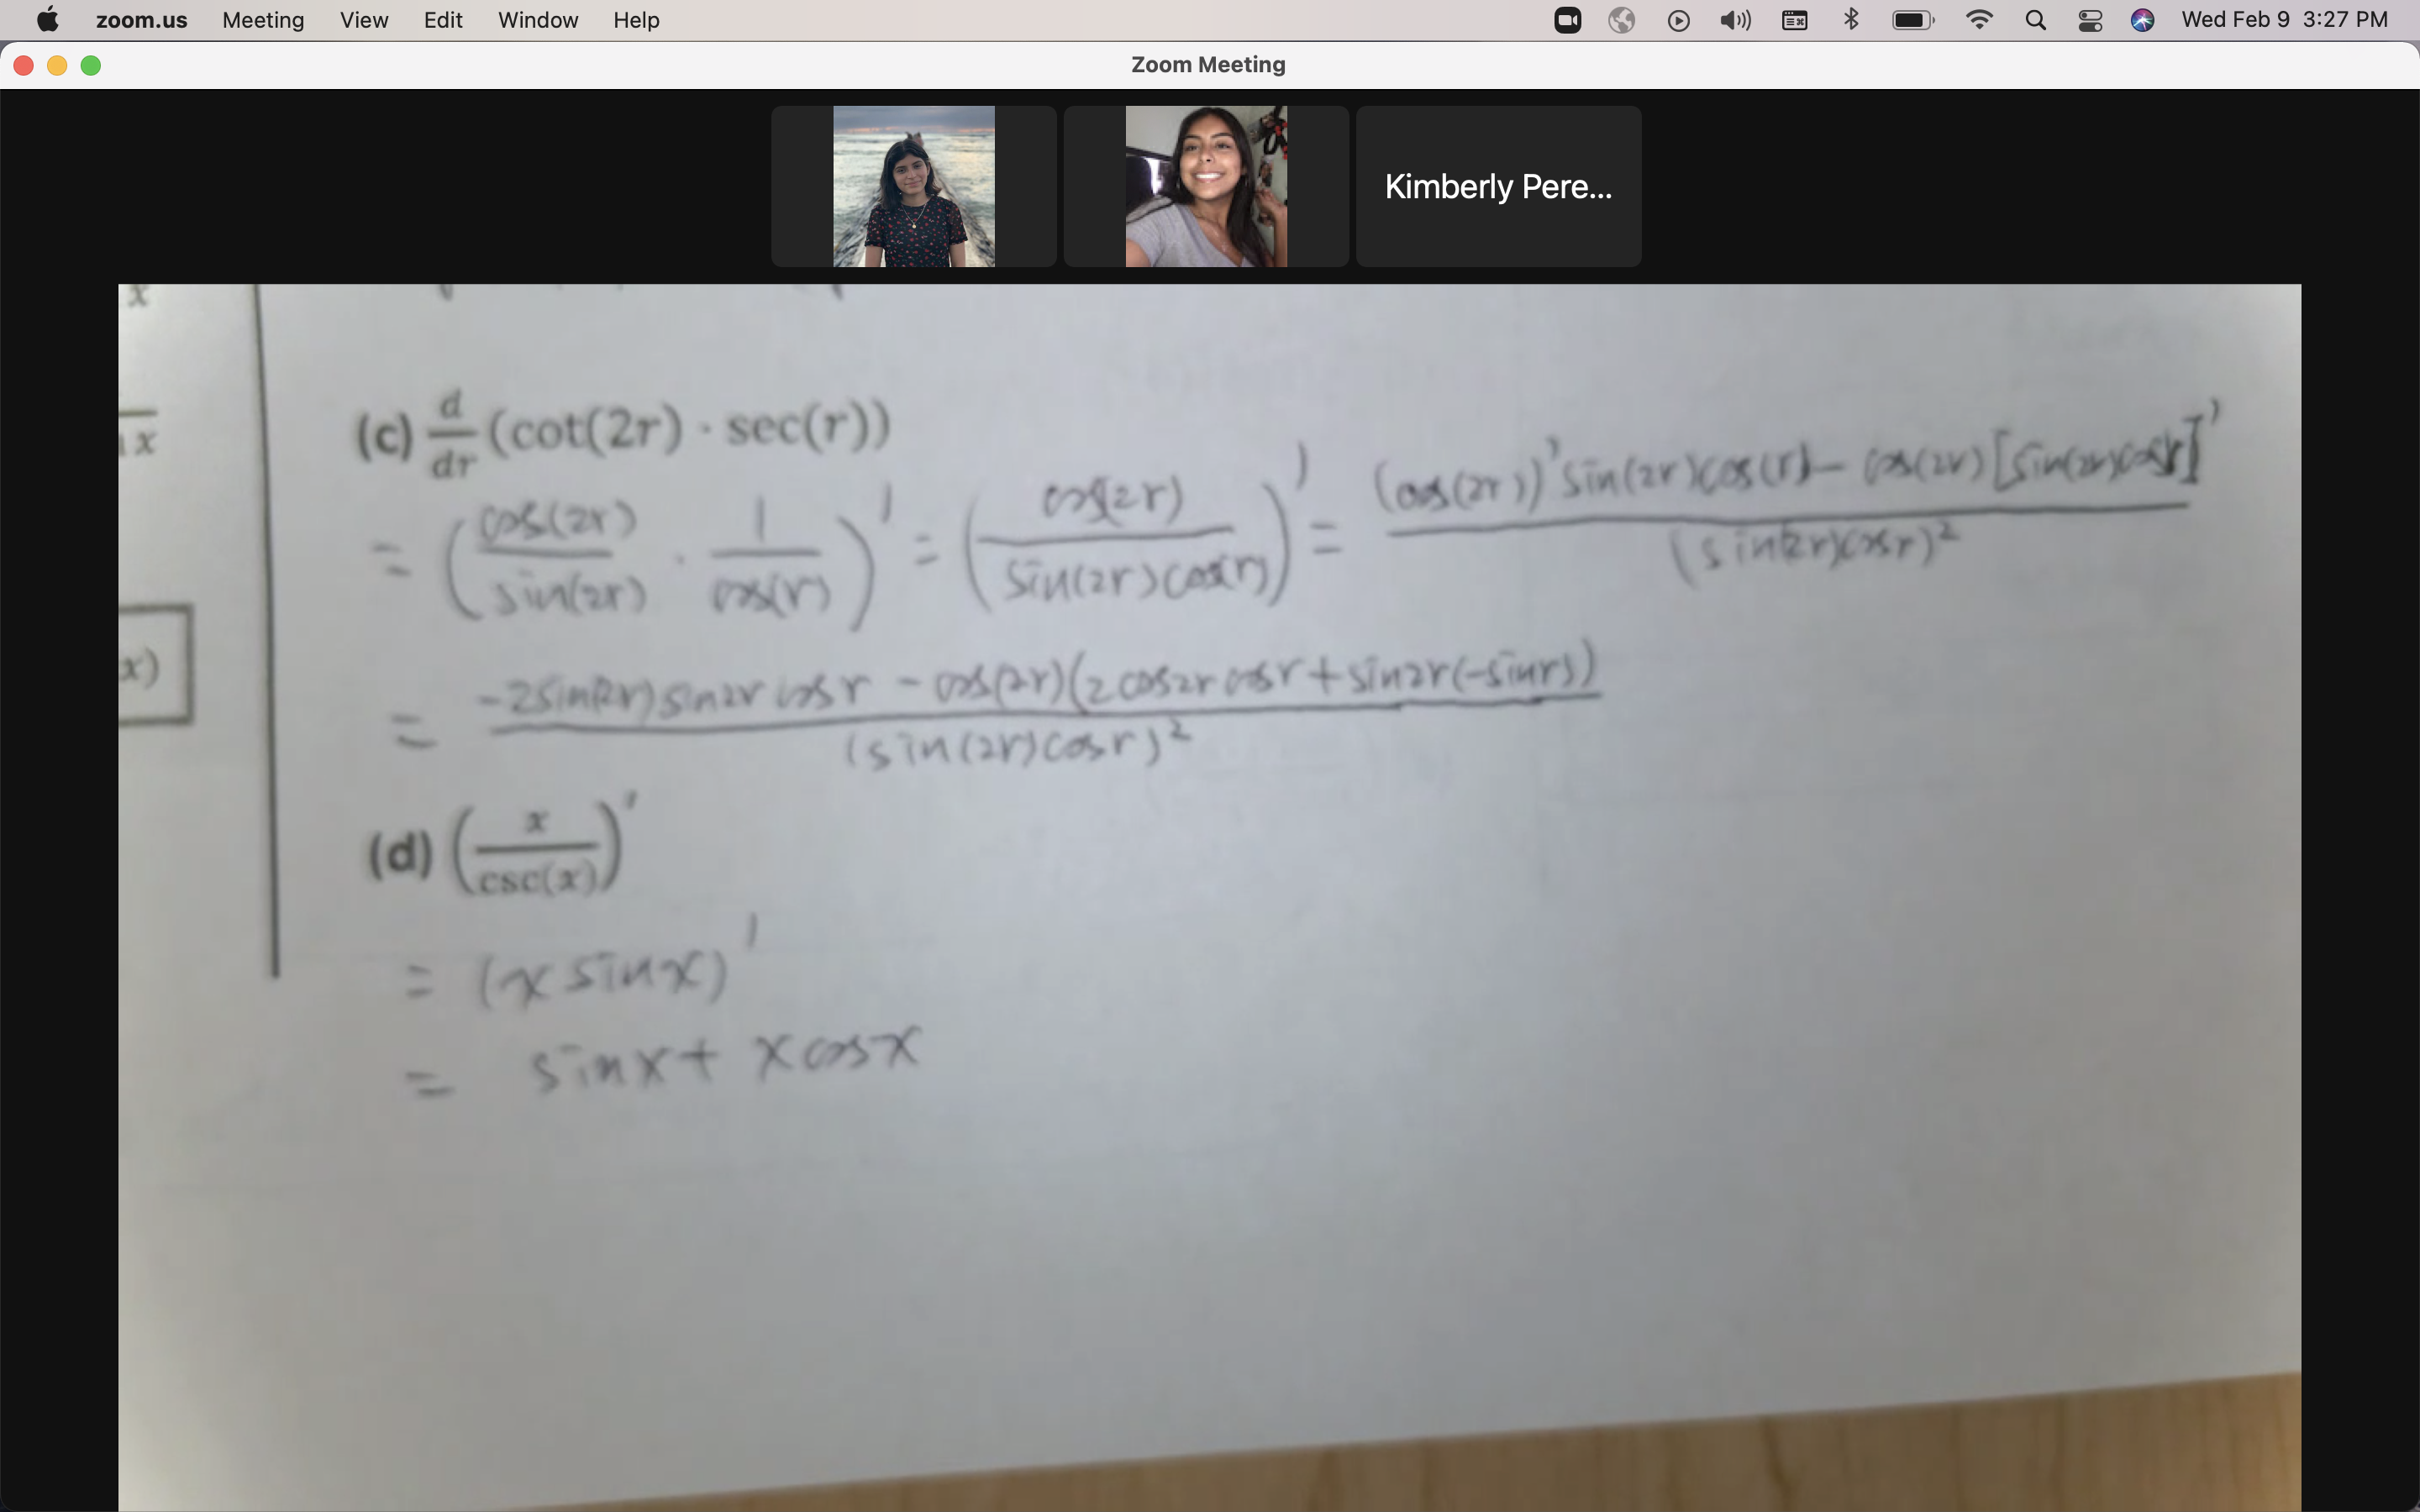 zoom.us Meeting View Edit Window Help Wed Feb 9 3:27 PM
Zoom Meeting
Kimberly Pere...
x
x
x)
(c) d/dr (cot(2r) · sec(r))
= (cos(2r)/sin(2r) · 1/cos(r))' = (cos(2r)/sin(2r)cos(r))' = (cos(2r))'sin(2r)cos(r) - cos(2r)[sin(2r)cosr]'/(sin(2r)cosr)²
= -2sin(2r)sin2r cosr - cos(2r)(2cos2r cosr + sin2r(-sinr))/(sin(2r)cosr)²
(d) (x/csc(x))'
= (x sinx)'
= sinx + x cosx